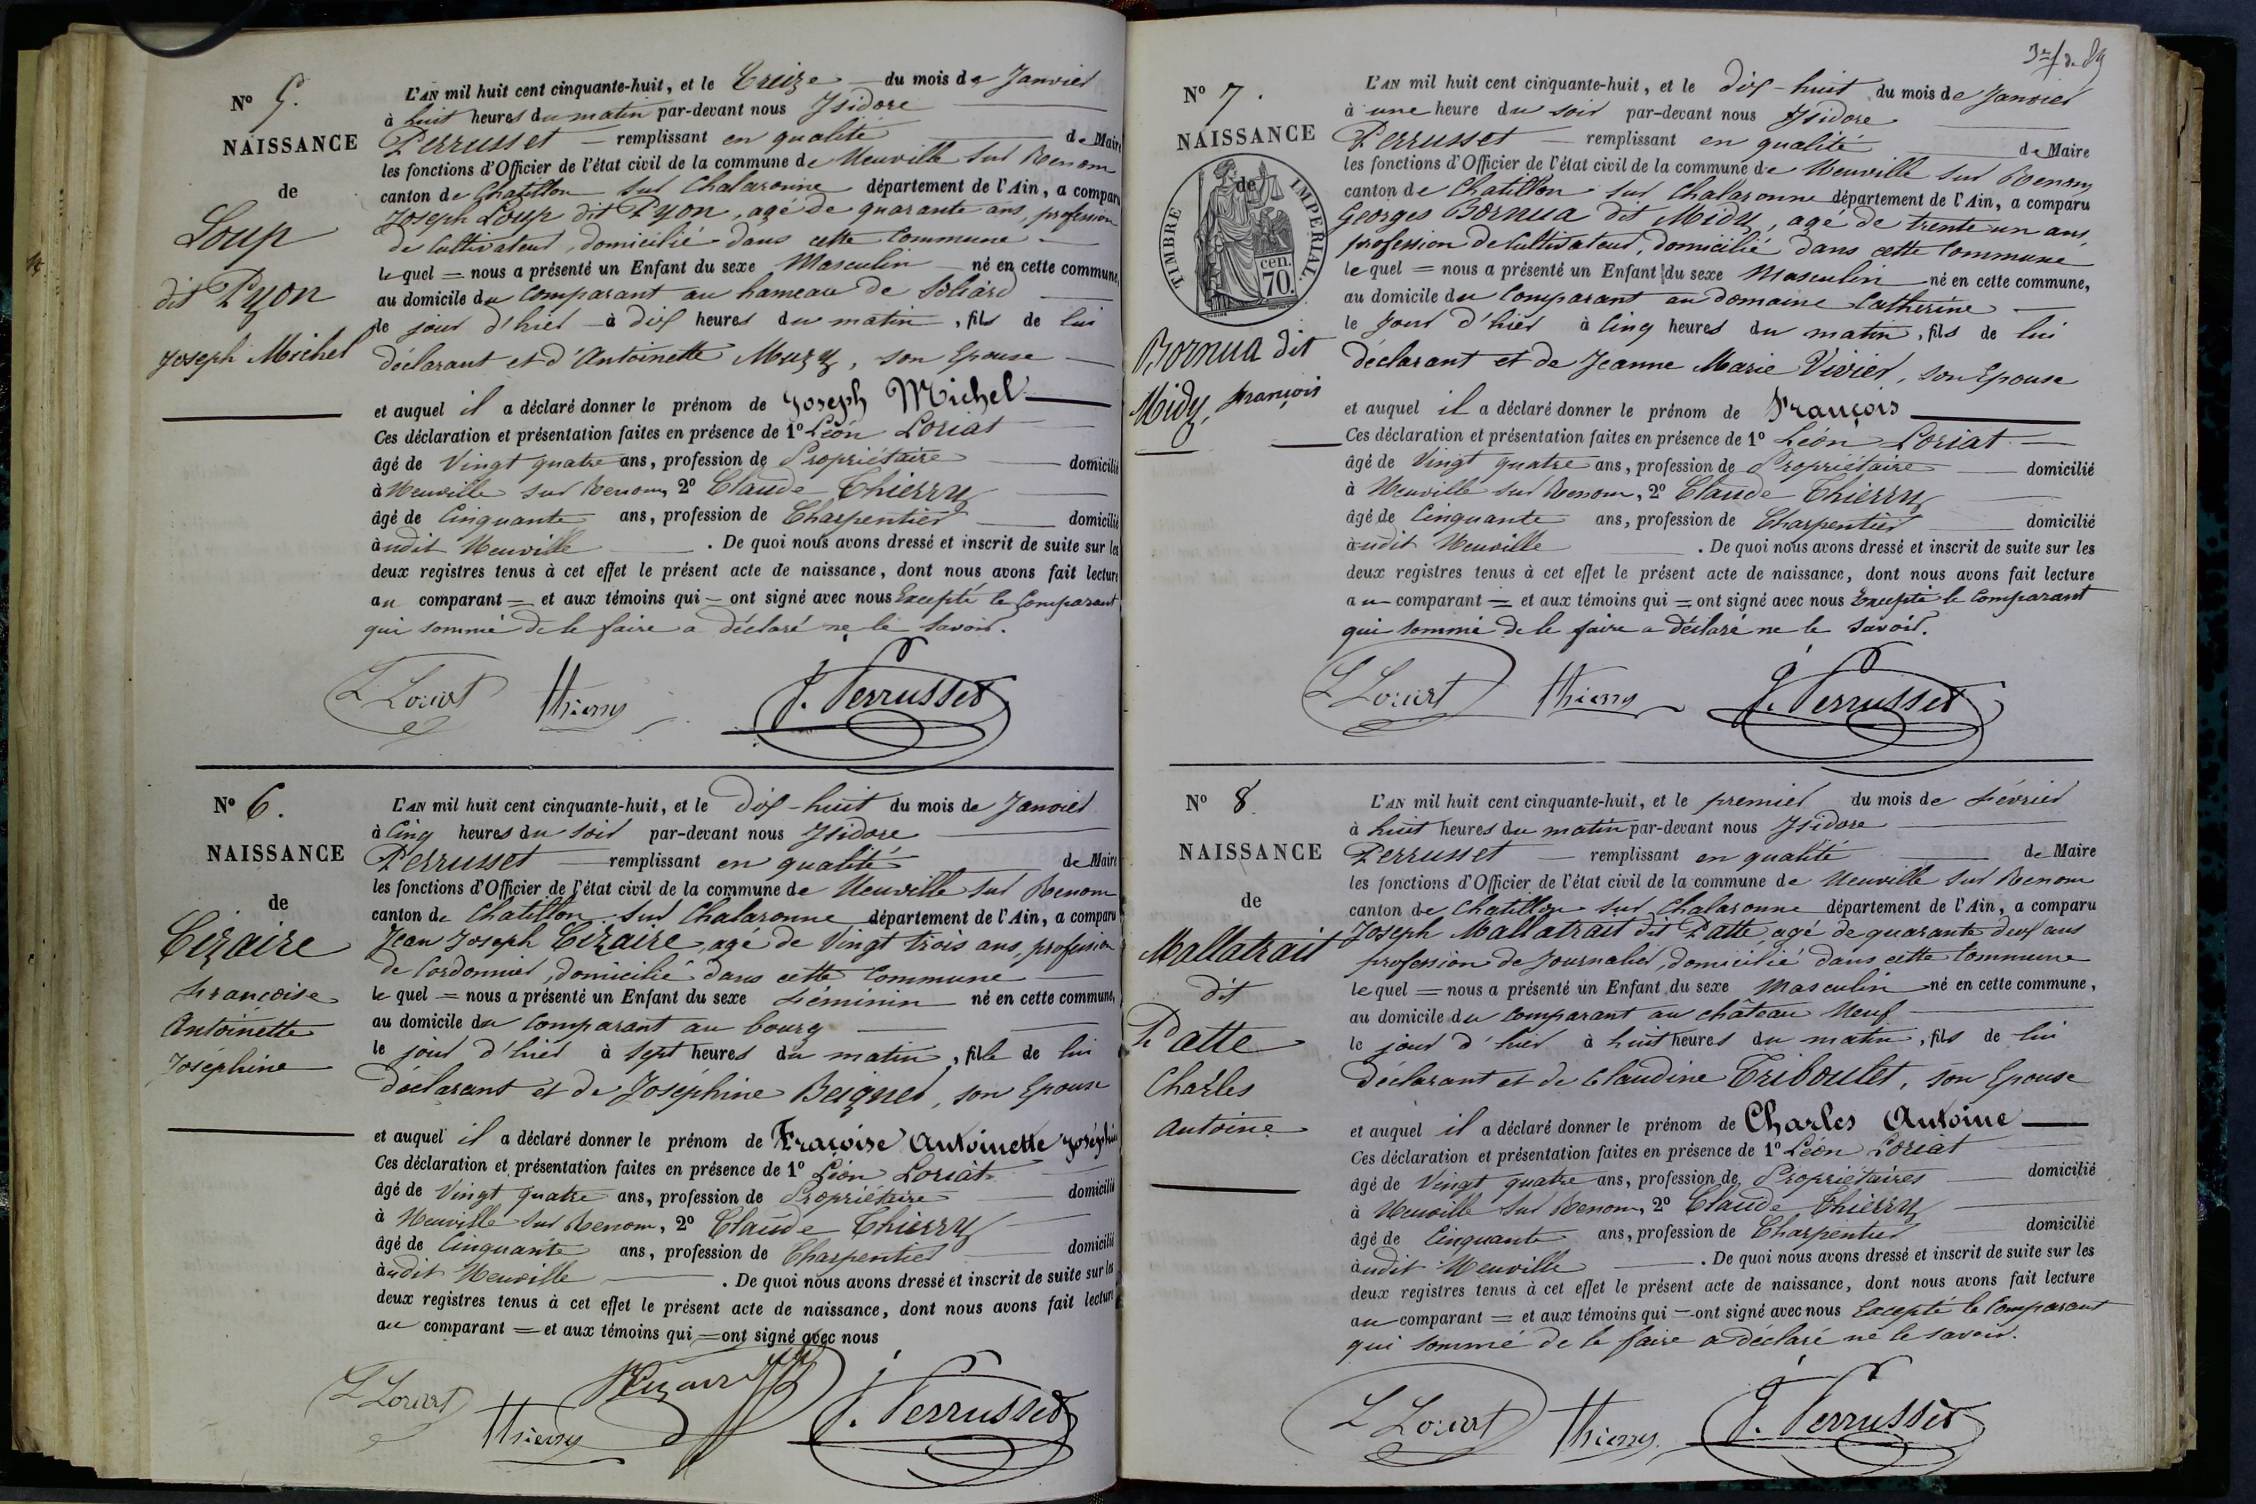 N° 5.
NAISSANCE
de
Loup
dit Pyon
Joseph Michel
L'AN mil huit cent cinquante-huit, et le Treize du mois de Janvier
à huit heures du matin par-devant nous Isidore
Perrusset remplissant en qualité de Maire
les fonctions d'Officier de l'état civil de la commune de Neuville sur Renom
canton de Chatillon sur Chalaronne département de l'Ain, a comparu
Joseph Loup dit Pyon, agé de quarante ans, profession
de Cultivateur, domicilié dans cette Commune
le quel = nous a présenté un Enfant du sexe Masculin né en cette commune,
au domicile du Comparant au hameau de
le jour d'hier à dix heures du matin, fils de lui
déclarant et d'Antoinette Muzy, son Epouse
et auquel il a déclaré donner le prénom de Joseph Michel
Ces déclaration et présentation faites en présence de 1° Léon Loriat
âgé de Vingt quatre ans, profession de Propriétaire domicilié
à Neuville sur Renom, 2° Claude Thierry
âgé de Cinquante ans, profession de Charpentier domicilié
audit Neuville. De quoi nous avons dressé et inscrit de suite sur les
deux registres tenus à cet effet le présent acte de naissance, dont nous avons fait lecture
au comparant = et aux témoins qui = ont signé avec nous Excepté le Comparant
qui sommé de le faire a déclaré ne le savoir.
L Loriat Thierry J. Perrusset
N° 6.
NAISSANCE
de
Cizaire
Françoise
Antoinette
Joséphine
L'AN mil huit cent cinquante-huit, et le Dix-huit du mois de Janvier
à Cinq heures du soir par-devant nous Isidore
Perrusset remplissant en qualité de Maire
les fonctions d'Officier de l'état civil de la commune de Neuville sur Renom
canton de Chatillon sur Chalaronne département de l'Ain, a comparu
Jean Joseph Cizaire, agé de Vingt trois ans, profession
de Cordonnier, domicilié dans cette Commune
le quel = nous a présenté un Enfant du sexe Féminin né en cette commune,
au domicile du Comparant au bourg
le jour d'hier à sept heures du matin, fille de lui
déclarant et de Joséphine Beignet, son Epouse
et auquel il a déclaré donner le prénom de Fraçoise Antoinette Joséphine
Ces déclaration et présentation faites en présence de 1° Léon Loriat
âgé de Vingt quatre ans, profession de Propriétaire domicilié
à Neuville sur Renom, 2° Claude Thierry
âgé de Cinquante ans, profession de Charpentier domicilié
audit Neuville. De quoi nous avons dressé et inscrit de suite sur les
deux registres tenus à cet effet le présent acte de naissance, dont nous avons fait lecture
au comparant = et aux témoins qui = ont signé avec nous
L Loriat Thierry J. Perrusset
N° 7.
NAISSANCE
de
TIMBRE IMPÉRIAL
70 cen.
Bornua dit
Midy, françois
L'AN mil huit cent cinquante-huit, et le dix-huit du mois de Janvier
à une heure du soir par-devant nous Isidore
Perrusset remplissant en qualité de Maire
les fonctions d'Officier de l'état civil de la commune de Neuville sur Renom
canton de Chatillon sur Chalaronne département de l'Ain, a comparu
Georges Bornua dit Midy, agé de trente un ans,
profession de Cultivateur, domicilié dans cette Commune
le quel = nous a présenté un Enfant du sexe Masculin né en cette commune,
au domicile du Comparant au domaine Catherine
le jour d'hier à Cinq heures du matin, fils de lui
déclarant et de Jeanne Marie Vivier, son Epouse
et auquel il a déclaré donner le prénom de François
Ces déclaration et présentation faites en présence de 1° Léon Loriat
âgé de Vingt quatre ans, profession de Propriétaire domicilié
à Neuville sur Renom, 2° Claude Thierry
âgé de Cinquante ans, profession de Charpentier domicilié
audit Neuville. De quoi nous avons dressé et inscrit de suite sur les
deux registres tenus à cet effet le présent acte de naissance, dont nous avons fait lecture
au comparant = et aux témoins qui = ont signé avec nous Excepté le Comparant
qui sommé de le faire a déclaré ne le savoir.
L Loriat Thierry J. Perrusset
N° 8.
NAISSANCE
de
Mallatrait
dit
Patte
Charles
Antoine
L'AN mil huit cent cinquante-huit, et le premier du mois de Février
à huit heures du matin par-devant nous Isidore
Perrusset remplissant en qualité de Maire
les fonctions d'Officier de l'état civil de la commune de Neuville sur Renom
canton de Chatillon sur Chalaronne département de l'Ain, a comparu
Joseph Mallatrait dit Patte agé de quarante deux ans
profession de Journalier, domicilié dans cette Commune
le quel = nous a présenté un Enfant du sexe Masculin né en cette commune,
au domicile du Comparant au château Neuf
le jour d'hier à huit heures du matin, fils de lui
déclarant et de Claudine Triboulet, son Epouse
et auquel il a déclaré donner le prénom de Charles Antoine
Ces déclaration et présentation faites en présence de 1° Léon Loriat
âgé de Vingt quatre ans, profession de Propriétaires domicilié
à Neuville sur Renom, 2° Claude Thierry
âgé de Cinquante ans, profession de Charpentier domicilié
audit Neuville. De quoi nous avons dressé et inscrit de suite sur les
deux registres tenus à cet effet le présent acte de naissance, dont nous avons fait lecture
au comparant = et aux témoins qui = ont signé avec nous Excepté le Comparant
qui sommé de le faire a déclaré ne le savoir.
L Loriat Thierry J. Perrusset